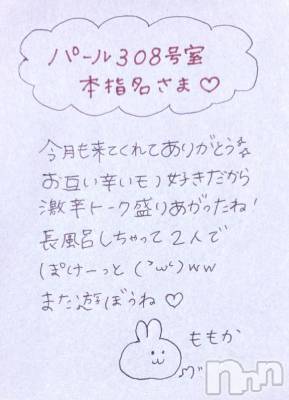 パール308号室
本指名さま♡
今月も来てくれてありがとう☆
お互い辛いもの好きだから
激辛トーク盛りあがったね!
長風呂しちゃって2人で
ぽけーっと(˘ω˘)ww
また遊ぼうね♡
ももか
nmn